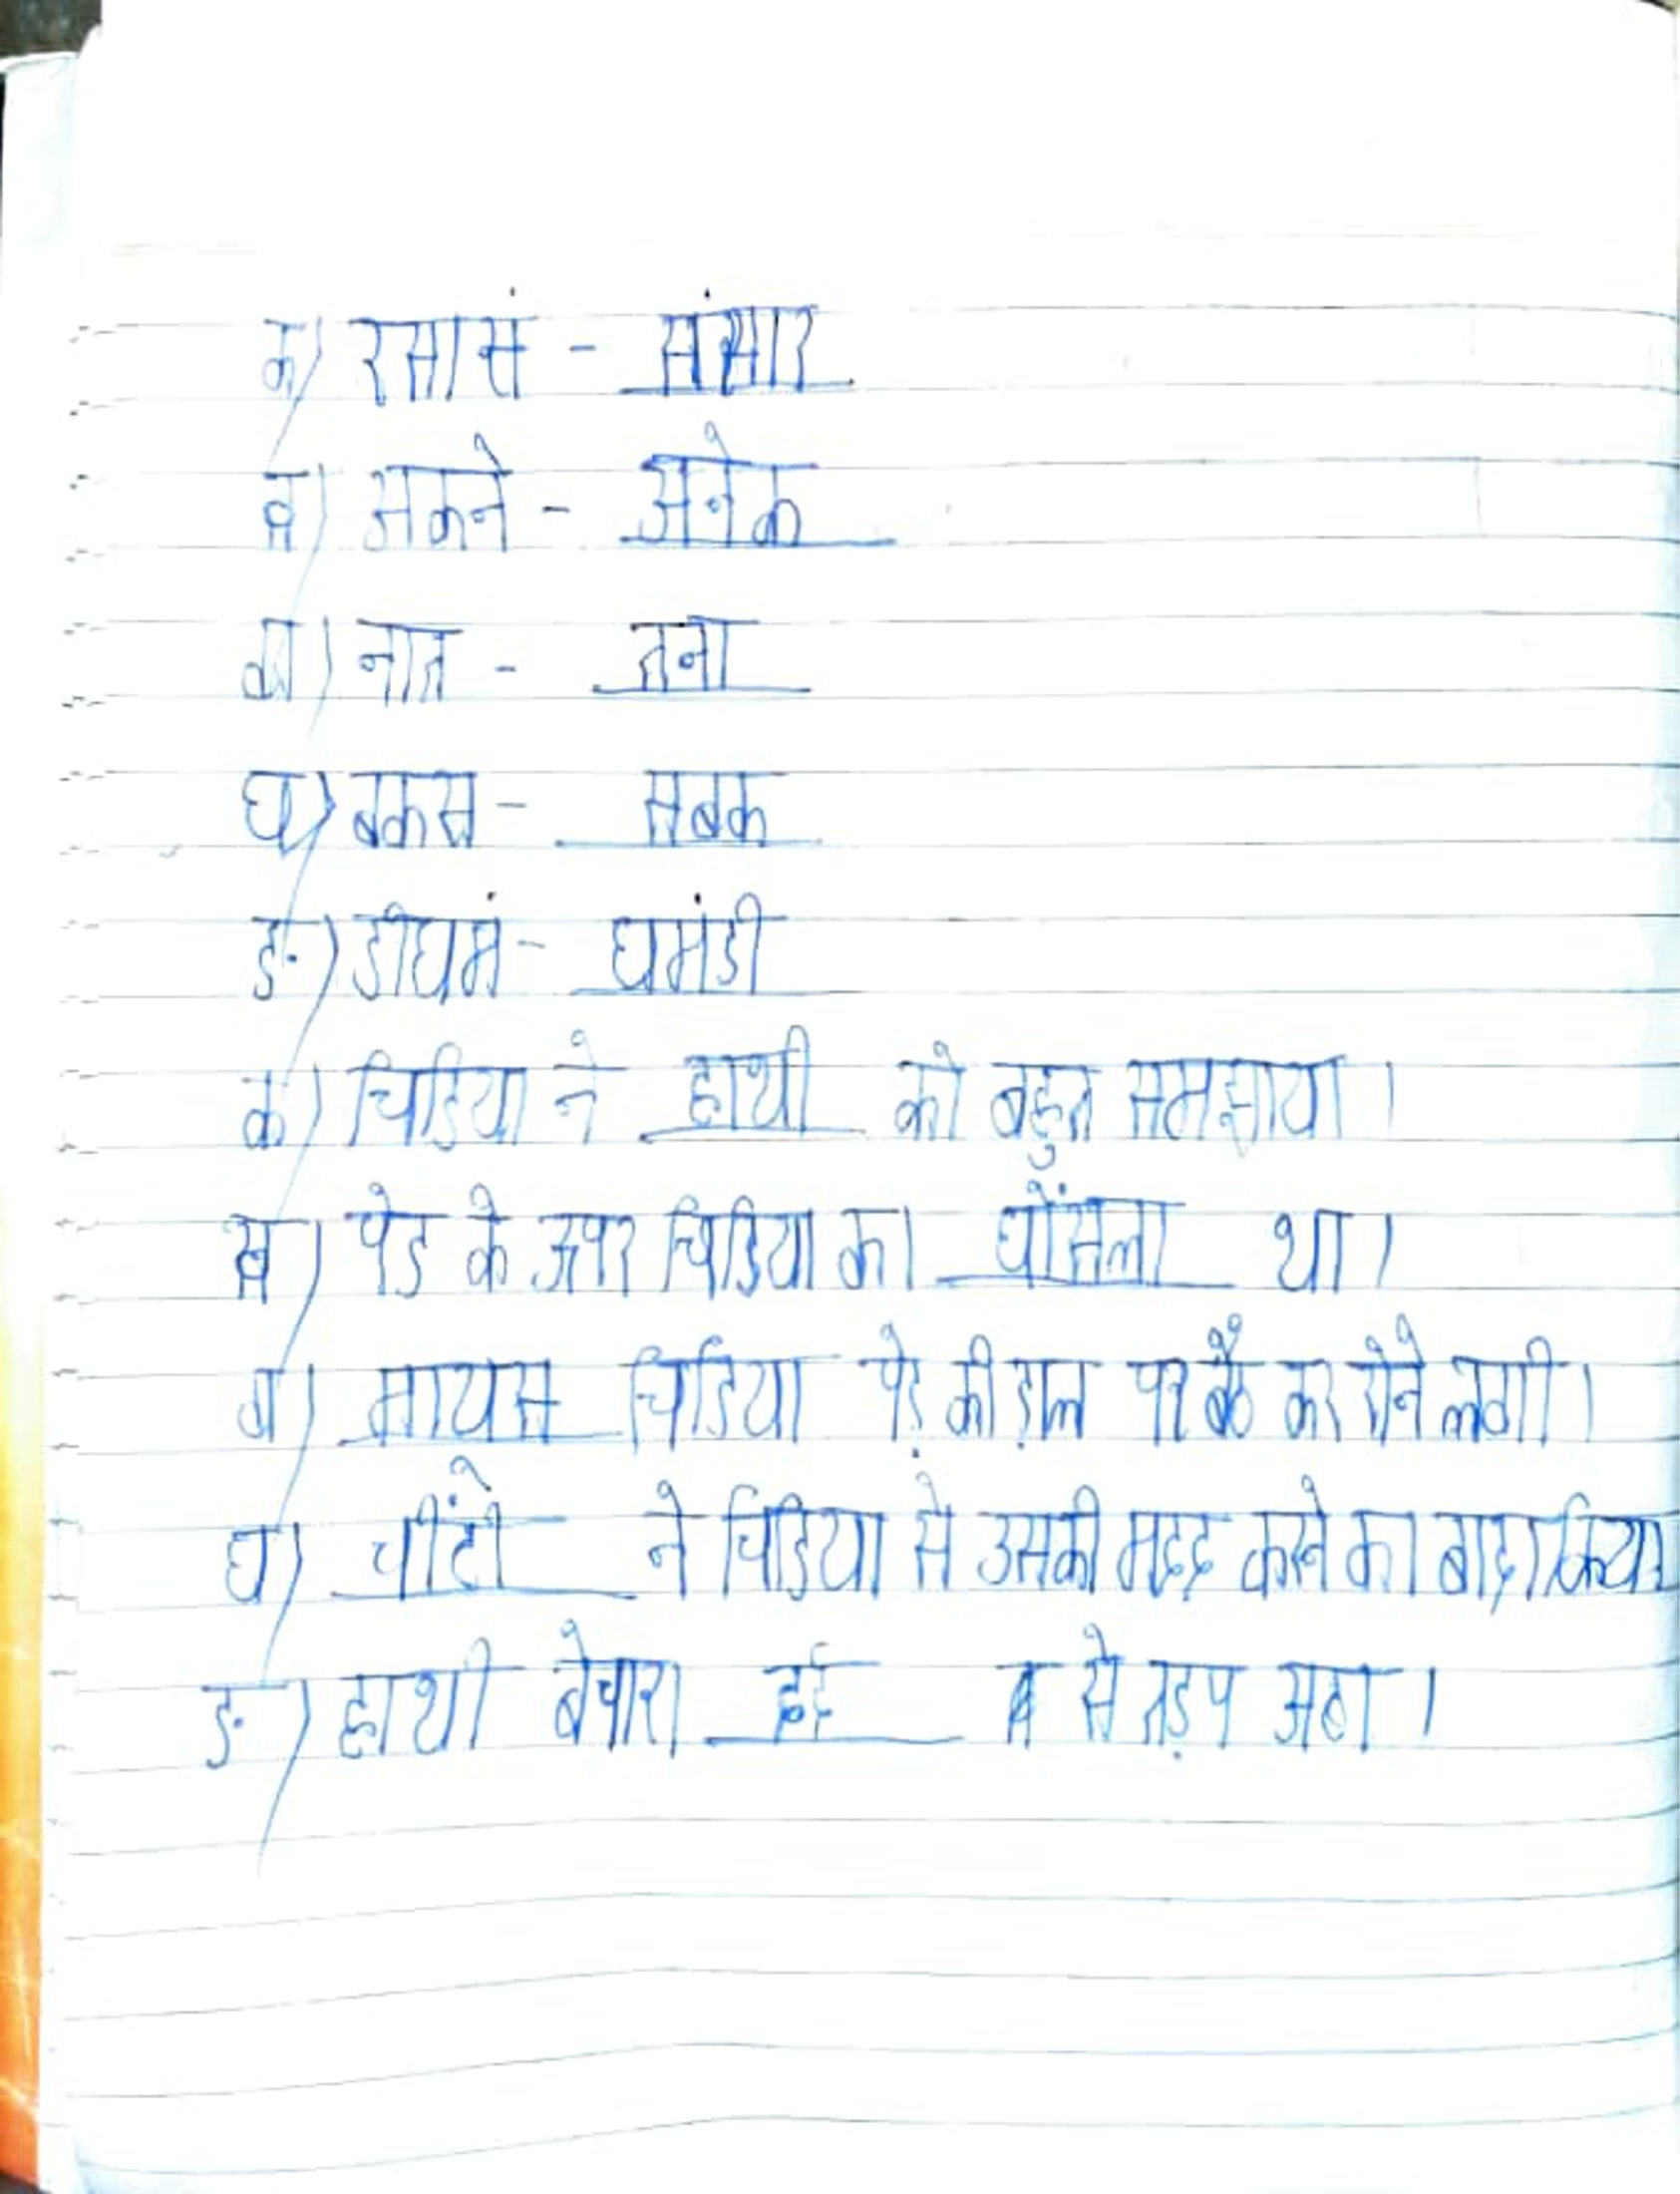 क) रसासं - संसार
ख) अकने - अनेक
ग) नात - तना
घ) बकस - सबक
ङ) डीघमं - घमंडी
क) चिडिया ने हाथी को बहुत समझाया।
ख) पेड के ऊपर चिडिया का घोंसला था।
ग) मायस चिडिया पेड़ की ड़ाल पर बैठ कर रोने लगी।
घ) ने चिडिया से उसकी मदद करने का बादा किया
ङ) हाथी बेचारा दर्द से तड़प उठा।